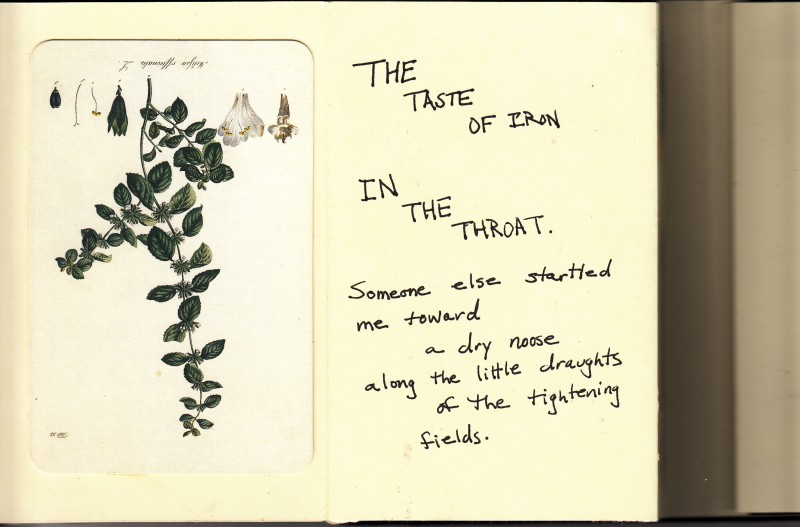 Melissa officinalis L.
THE
TASTE
OF IRON
IN
THE
THROAT.
Someone else startled
me toward
a dry noose
along the little draughts
of the tightening
fields.